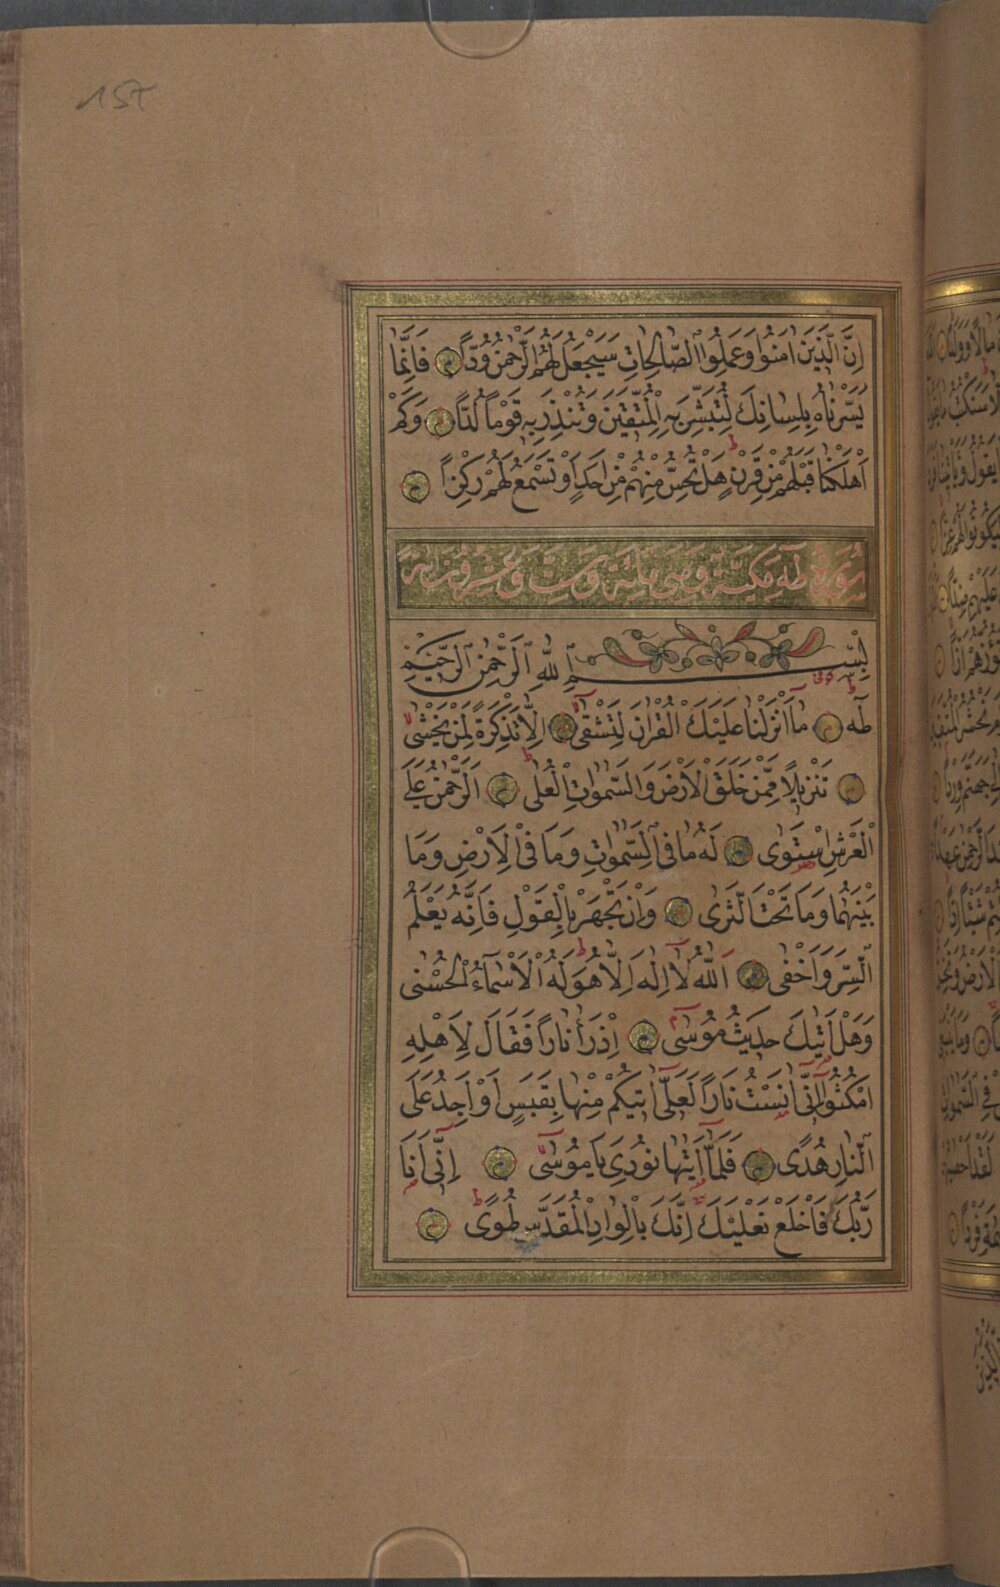 157
اِنَّ الَّذِينَ اٰمَنُوا وَعَمِلُوا الصَّالِحَاتِ سَيَجْعَلُ لَهُمُ الرَّحْمٰنُ وُدًّا فَاِنَّمَا
يَسَّرْنَاهُ بِلِسَانِكَ لِتُبَشِّرَ بِهِ الْمُتَّقِينَ وَتُنْذِرَ بِهِ قَوْمًا لُدًّا وَكَمْ
اَهْلَكْنَا قَبْلَهُمْ مِنْ قَرْنٍ هَلْ تُحِسُّ مِنْهُمْ مِنْ اَحَدٍ اَوْ تَسْمَعُ لَهُمْ رِكْزًا
سُورَةُ طٰهٰ مَكِّيَّةٌ وَهِيَ مِائَة وَسِتّ وَعِشْرُونَ اٰيَة
بِسْمِ اللّٰهِ الرَّحْمٰنِ الرَّحِيمِ
طٰهٰ مَا اَنْزَلْنَا عَلَيْكَ الْقُرْاٰنَ لِتَشْقٰى اِلَّا تَذْكِرَةً لِمَنْ يَخْشٰى
تَنْزِيلًا مِمَّنْ خَلَقَ الْاَرْضَ وَالسَّمٰوَاتِ الْعُلٰى اَلرَّحْمٰنُ عَلَى
الْعَرْشِ اسْتَوٰى لَهُ مَا فِى السَّمٰوَاتِ وَمَا فِى الْاَرْضِ وَمَا
بَيْنَهُمَا وَمَا تَحْتَ الثَّرٰى وَاِنْ تَجْهَرْ بِالْقَوْلِ فَاِنَّهُ يَعْلَمُ
السِّرَّ وَاَخْفٰى اَللّٰهُ لَا اِلٰهَ اِلَّا هُوَ لَهُ الْاَسْمَاءُ الْحُسْنٰى
وَهَلْ اَتٰيكَ حَدِيثُ مُوسٰى اِذْ رَاٰ نَارًا فَقَالَ لِاَهْلِهِ
امْكُثُوا اِنِّى اٰنَسْتُ نَارًا لَعَلِّى اٰتِيكُمْ مِنْهَا بِقَبَسٍ اَوْ اَجِدُ عَلَى
النَّارِ هُدًى فَلَمَّا اَتٰيهَا نُودِىَ يَا مُوسٰى اِنِّى اَنَا
رَبُّكَ فَاخْلَعْ نَعْلَيْكَ اِنَّكَ بِالْوَادِ الْمُقَدَّسِ طُوًى